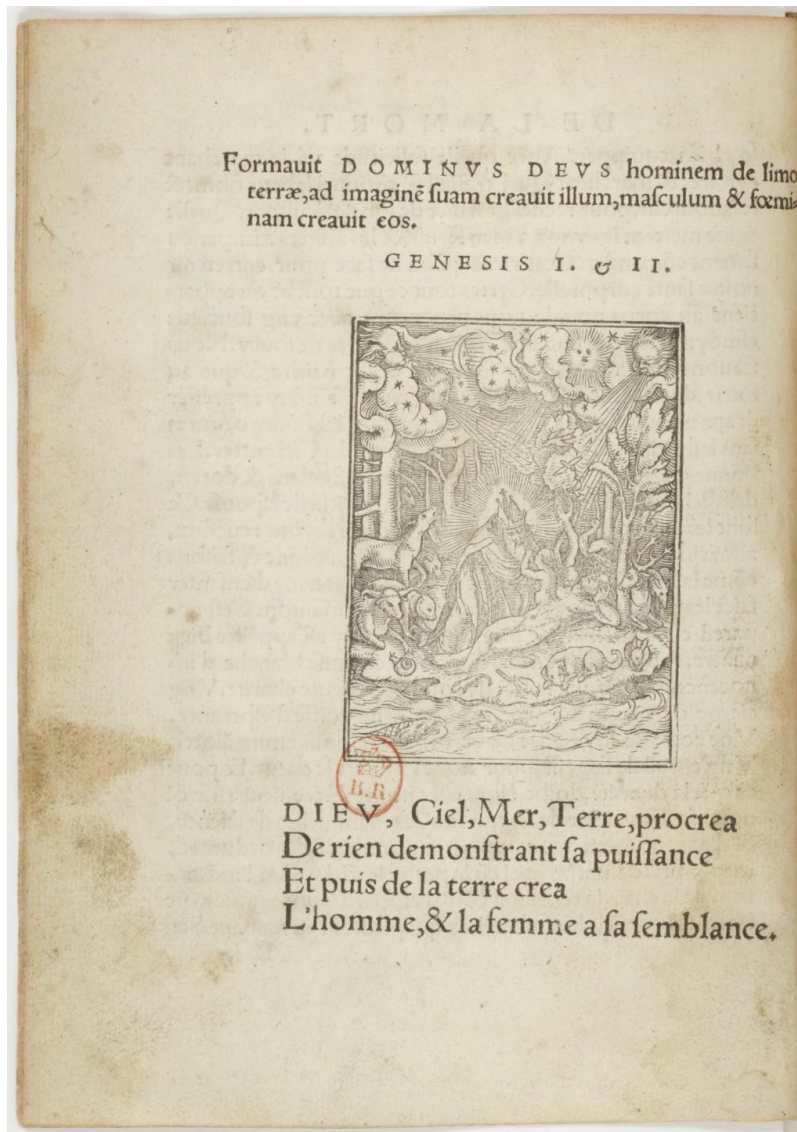 Formauit DOMINVS DEVS hominem de limo
terræ,ad imaginẽ ſuam creauit illum,maſculum & fœmi-
nam creauit eos.
GENESIS I. & II.
B.R.
DIEV, Ciel,Mer,Terre,procrea
De rien demonſtrant ſa puiſſance
Et puis de la terre crea
L'homme,& la femme a ſa ſemblance.